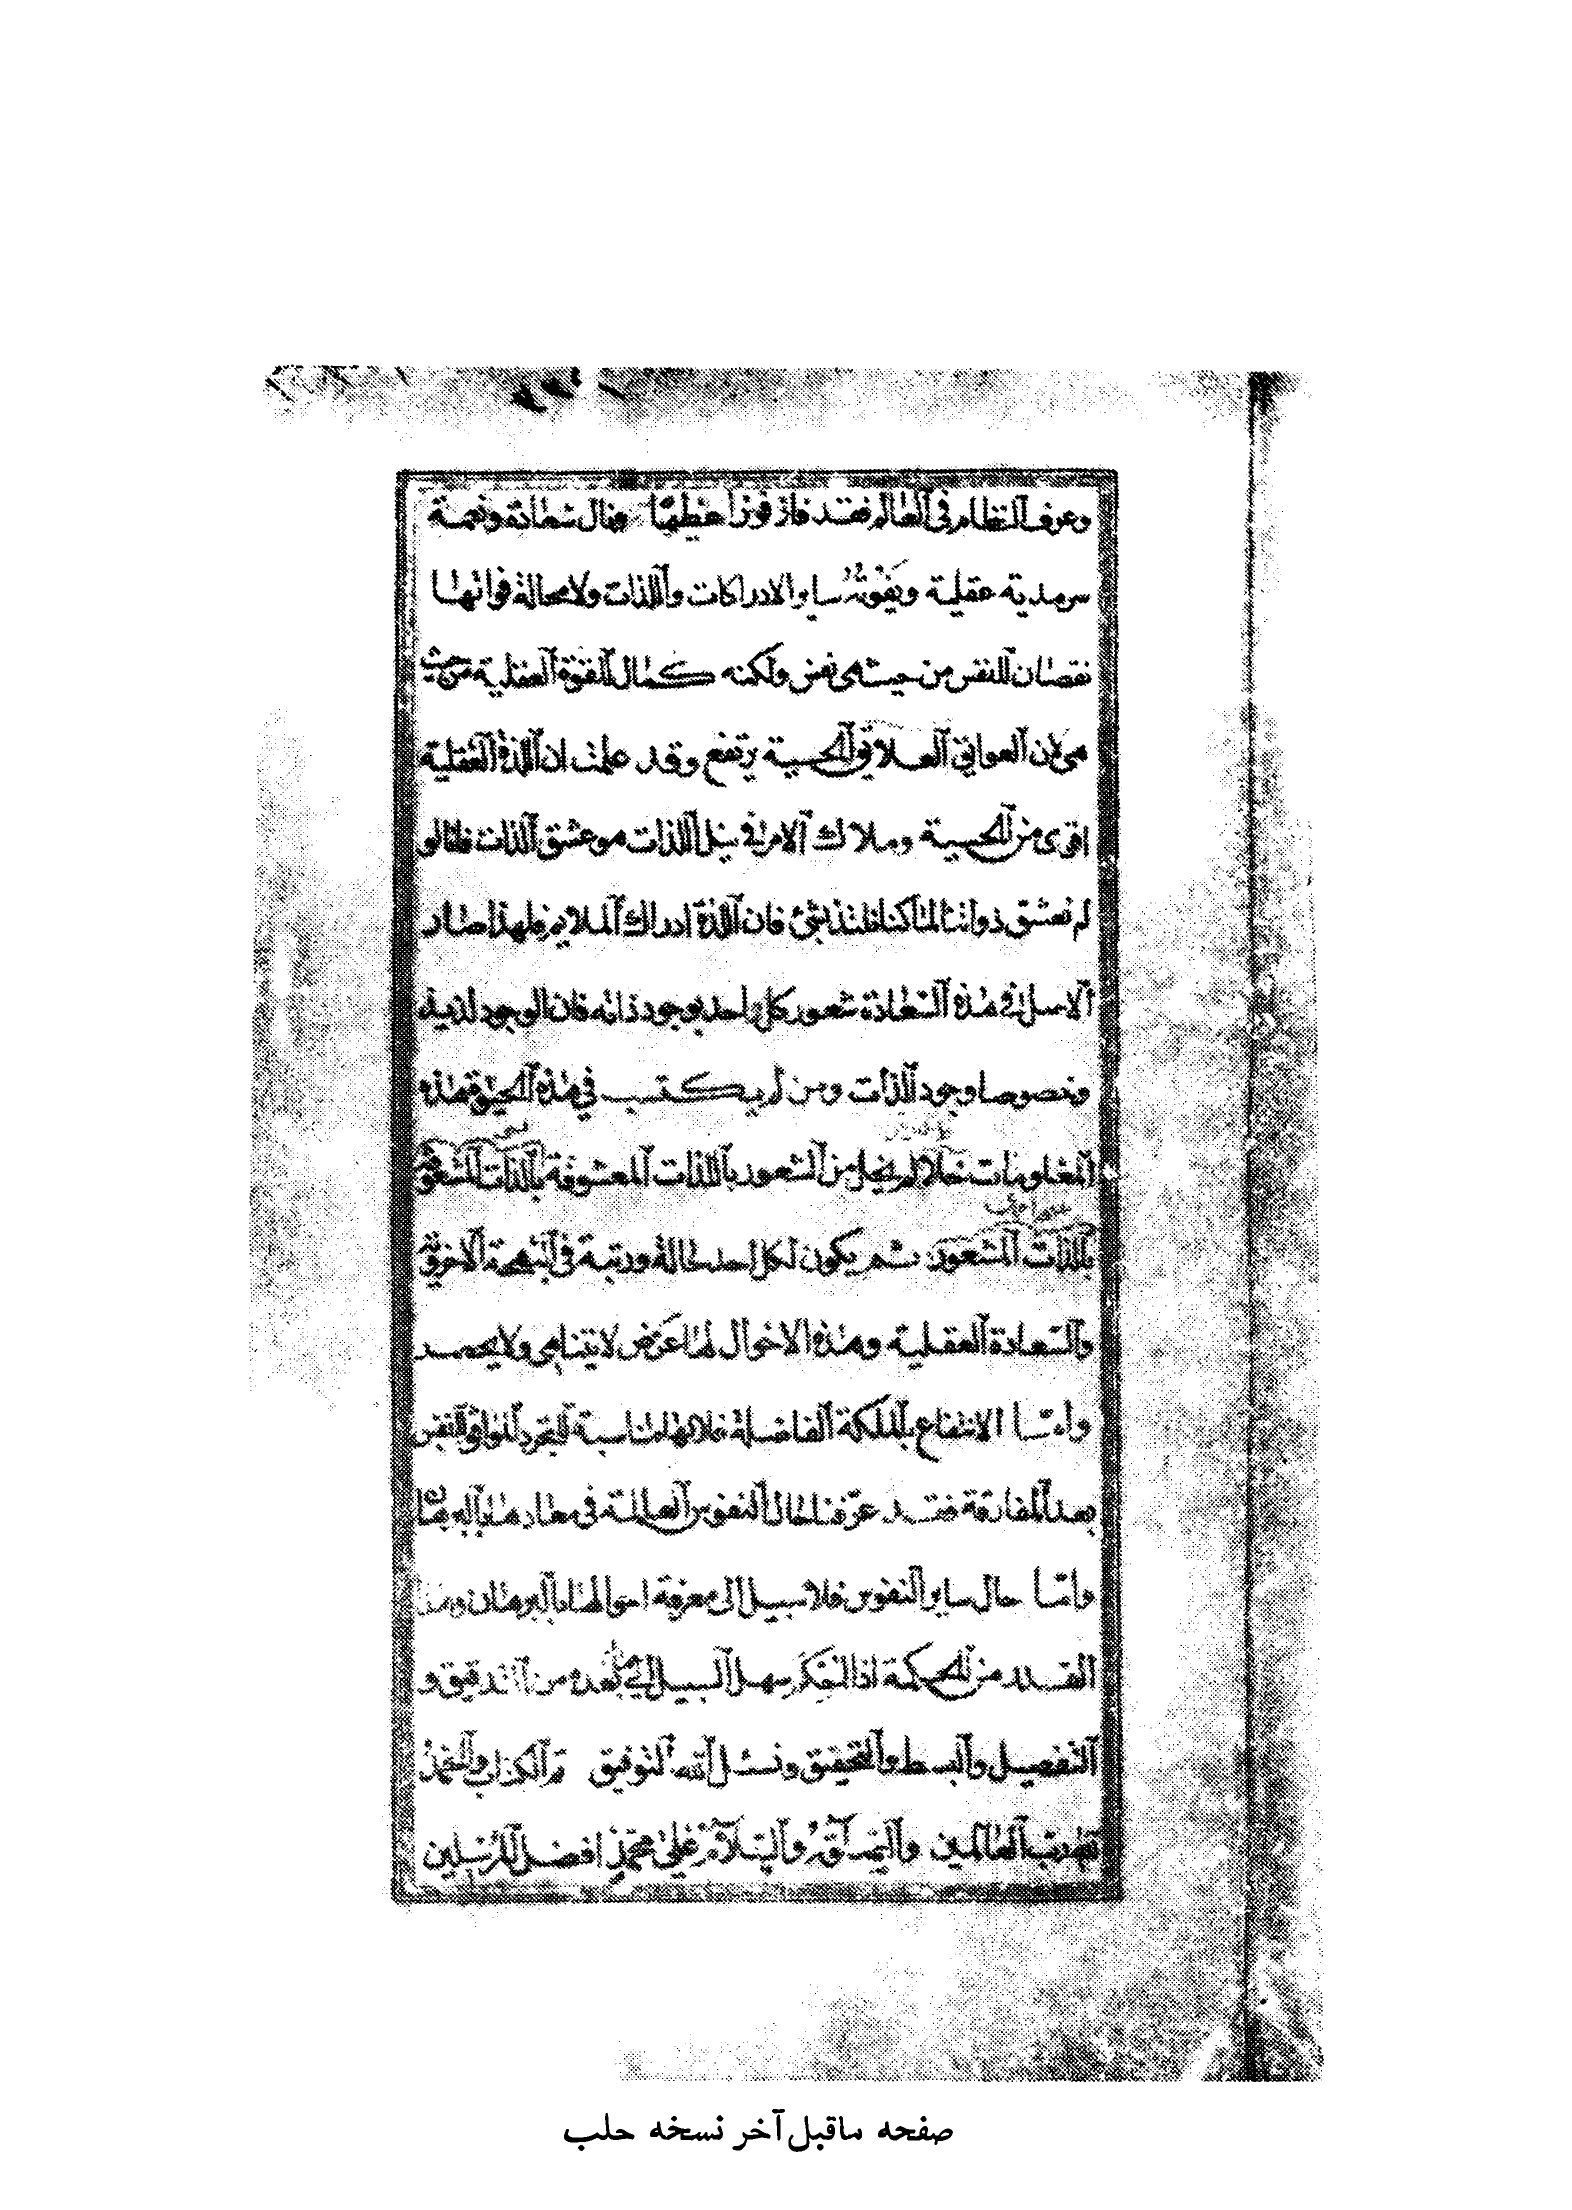 وعرف النظام في العالم فقد فاز فوزا عظيما ونال سعادة ونعمة
سرمدية عقلية ويفوته ساير الادراكات واللذات ولا محالة فواتها
نقصان للنفس من حيث هي نفس ولكنه كمال للقوة العقلية من حيث
هي لان العوايق العلايق الحسية يرتفع وقد علمت ان اللذة العقلية
اقوى من الحسية وملاك الامر في نيل اللذات هو عشق الذات فانا لو
لم نعشق ذواتنا لما كنا نلتذ بشئ فان اللذة ادراك الملايم فلهذا صار
الاصل في هذه السعادة شعور كل واحد بوجود ذاته فان الوجود لذيذ
وخصوصا وجود الذات ومن لم يكتسب في هذه الحيوة هذه
المعلومات فلا لم يخل من الشعور باللذات المعشوقة بالذات المشعور
بالذات المشعور ثم يكون لكل احد حالة ورتبة في البهجة الاخروية
والسعادة العقلية وهذه الاحوال لها عرض لا يتناهى ولا يحصر
واما الانتفاع بالملكة الفاضلة فلانها مناسبة للتجرد لتوافق النفس
بعد المفارقة فقد عرفنا حال النفوس العالمة في معادها بالبرهان
واما حال ساير النفوس فلا سبيل الى معرفة احوالها بالبرهان وهذا
القدر من الحكمة اذا تفكر سهل السبيل الى ما بعده من التدقيق و
التفصيل والبسط والتحقيق ونسئل الله التوفيق تم الكتاب والحمد
لله رب العالمين والصلوة والسلام على محمد افضل المرسلين
صفحه ماقبل آخر نسخه حلب